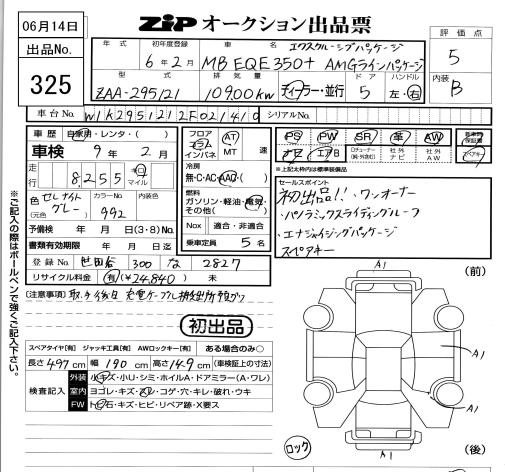 06月14日
ZIP オークション出品票
出品No.
325
年式 初年度登録 車名 エクスクルーシブパッケージ 評価点
6年2月 MB EQE350+ AMGラインパッケージ 5
型式 排気量 ドア ハンドル 内装
ZAA-295121 10900kw ディーラー・並行 5 左・右 B
車台No. W1K2951212F021410 シリアルNo.
車歴 自家用・レンタ・( ) フロア エンバネ AT MT 速
車検 9年2月
PS PW SR 革 AW
ナビ エアB Dチューナー(純・外含む) 社外ナビ 社外AW スペアキー
★上記太枠内は標準装備
走行 8,255 キロ マイル
冷房 無・C・AC・AAC・( )
燃料 ガソリン・軽油・電気・その他( )
色 セレナイトグレー (元色) カラーNo. 992 内装色
Nox 適合・非適合
予備検 年 月 日(3・8)No.
書類有効期限 年 月 日迄 乗車定員 5名
セールスポイント
初出品!!・ワンオーナー
・パノラミックスライディングルーフ
・エナジャイジングパッケージ
スペアキー
登録No. 世田谷 300 な 2827
リサイクル料金 有(¥24,840) 未
(注意事項)
初出品
スペアタイヤ[有] ジャッキ工具[有] AWロックキー[有] ある場合のみ○
長さ497cm 幅190cm 高さ149cm (車検証上の寸法)
検査記入
外装 小キズ・小リ・シミ・ホイルA・ドアミラー(A・ワレ)
室内 ヨゴレ・キズ・スレ・コゲ・穴・キレ・破れ・ウキ
FW トビ石・キズ・ヒビ・リペア跡・X要ス
※ご記入の際はボールペンで強くご記入下さい。
A1 (前)
A1
A1
A1 (後)
ロック